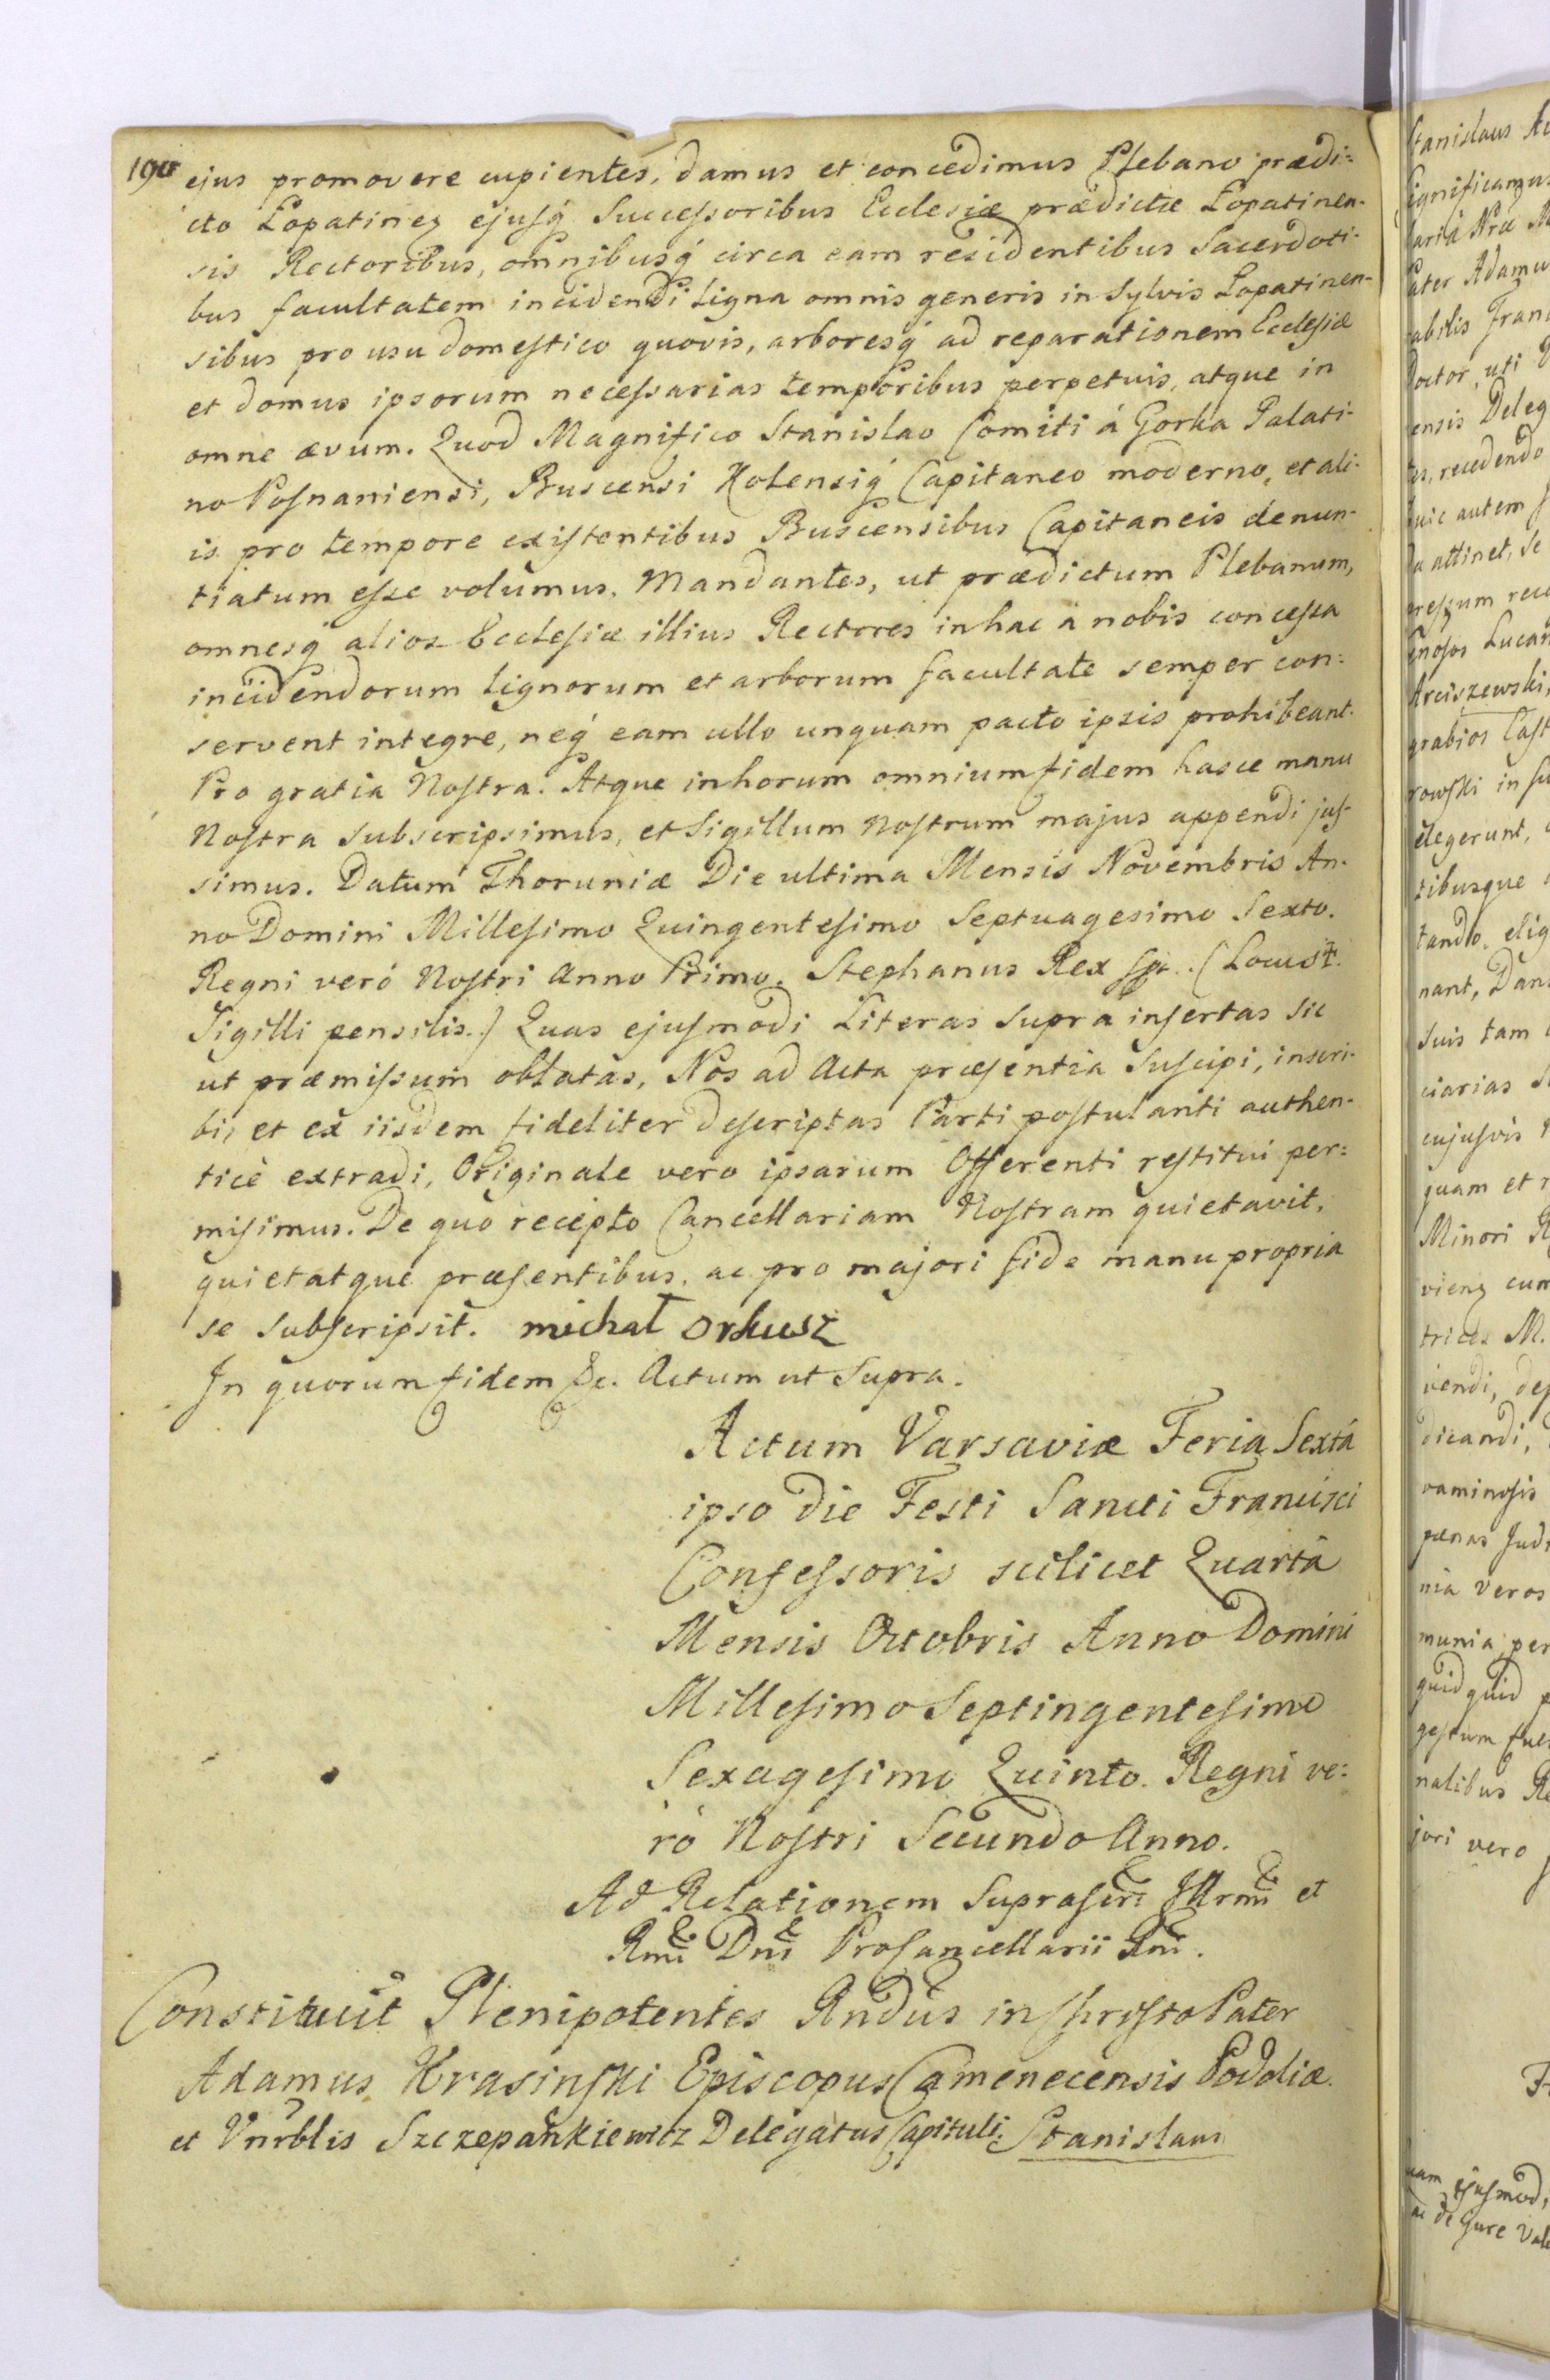 190
ejus promovere cupientes, damus et concedimus Plebano prædi:
cto Lopatinen ejusq́ Successoribus Ecclesiæ prædictæ Lopatinen-
sis Rectoribus, omnibusq́ circa eam residentibus Sacerdoti-
bus facultatem incidendi Ligna omnis generis in Sylvis Lopatinen-
sibus pro usu domestico quovis, arboresq́ ad reparationem Ecclesiæ
et domus ipsorum necessarias temporibus perpetuis, atque in
omne ævum. Quod Magnifico Stanislao Comiti á Gorka Palati-
no Posnaniensi, Buscensi Kolensiq́ Capitaneo moderno, et ali-
is pro tempore existentibus Buscensibus Capitaneis denun-
tiatum esse volumus. Mandantes, ut prædictum Plebanum,
omnesq́ alios Ecclesiæ illius Rectores in hac a nobis concessa
incidendorum Lignorum et arborum facultate semper con:
servent integre, neq́ eam ullo unquam pacto ipsis prohibeant.
Pro gratia Nostra. Atque in horum omnium fidem hasce manu
Nostra subscripsimus, et Sigillum Nostrum majus appendi jus-
simus. Datum Thoruniæ Die ultima Mensis Novembris An-
no Domini Millesimo Quingentesimo Septuagesimo Sexto.
Regni veró Nostri Anno Primo. Stephanus Rex sst. (Locus
Sigilli pensilis.) Quas ejusmodi Literas supra insertas sic
ut præmissum oblatas, Nos ad Acta præsentia suscipi, inscri-
bi, et ex iisdem fideliter descriptas Parti postulanti authen-
ticè extradi, Originale vero ipsarum Offerenti restitui per:
misimus. De quo recepto Cancellariam Nostram quietavit,
quietatque præsentibus, ac pro majori fide manu propria
se subscripsit. michał orkusz
In quorum fidem &c. Actum ut Supra.
Actum Varsaviæ Feria Sextâ
ipso die Festi Sancti Francisci
Confessoris scilicet Quartâ
Mensis Octobris Anno Domini
Millesimo Septingentesimo
Sexagesimo Quinto. Regni ve:
rò Nostri Secundo Anno.
Ad Relationem Suprascri Illrmi et
Rmi Dni ProCancellarii Rni.
Constituit Plenipotentes Rndus in Christo Pater
Adamus Krasinski Episcopus Camenecensis Podoliæ
et Vnrblis Szczepankiewicz Delegatus Capituli. Stanislaus
Stanislaus
Significamus
Nræ M
Pater Adamu
abilis Fran
Doctor, uti
ensis Deleg
recedendo
huic autem
attinet, se
Lucan
Arciszewski,
grabios Cast
rowski in
elegerunt,
tibusque
tando, elig
nant, Dan
suis tam
ciarias
cujusvis
quam et
Minori R
cum
trices M.
vendi, des
dicandi,
vaminosis
pænas Judi
nia veros
munia per
quidquid
gestum fue
nalibus Re
jori vero
ejusmod,
de Jure Val